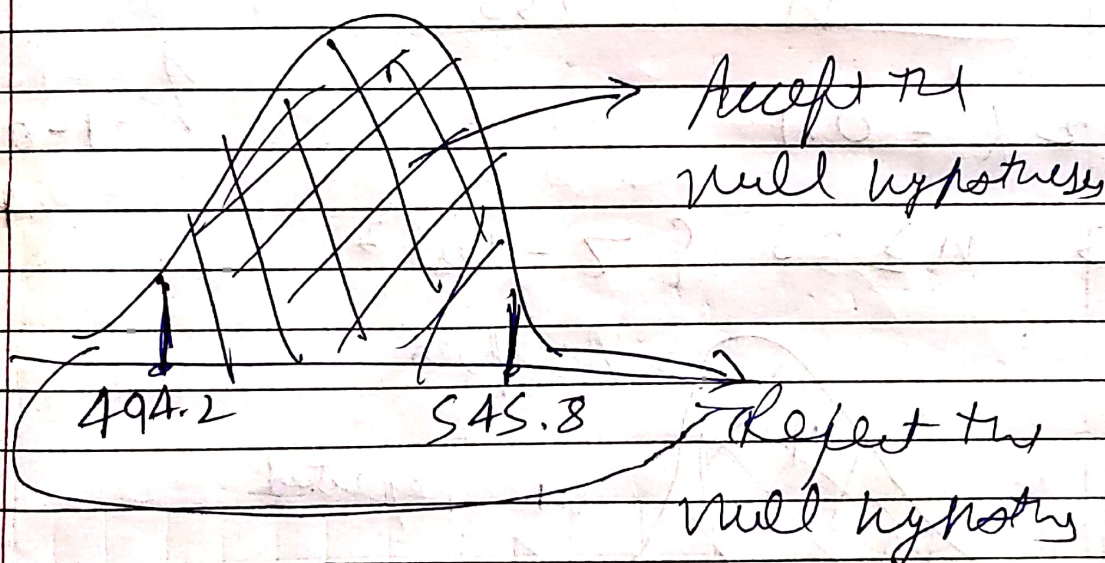 Accept the
null hypotheses
494.2 545.8
Reject the
null hypoths